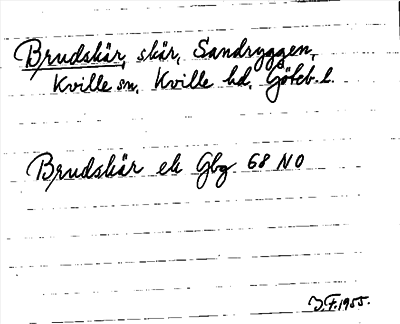 Brudskär, skär, Sandryggen,
Kville sn, Kville hd, Göteb. l.
Brudskär ek Gbg 68 NO
J.F. 1955.